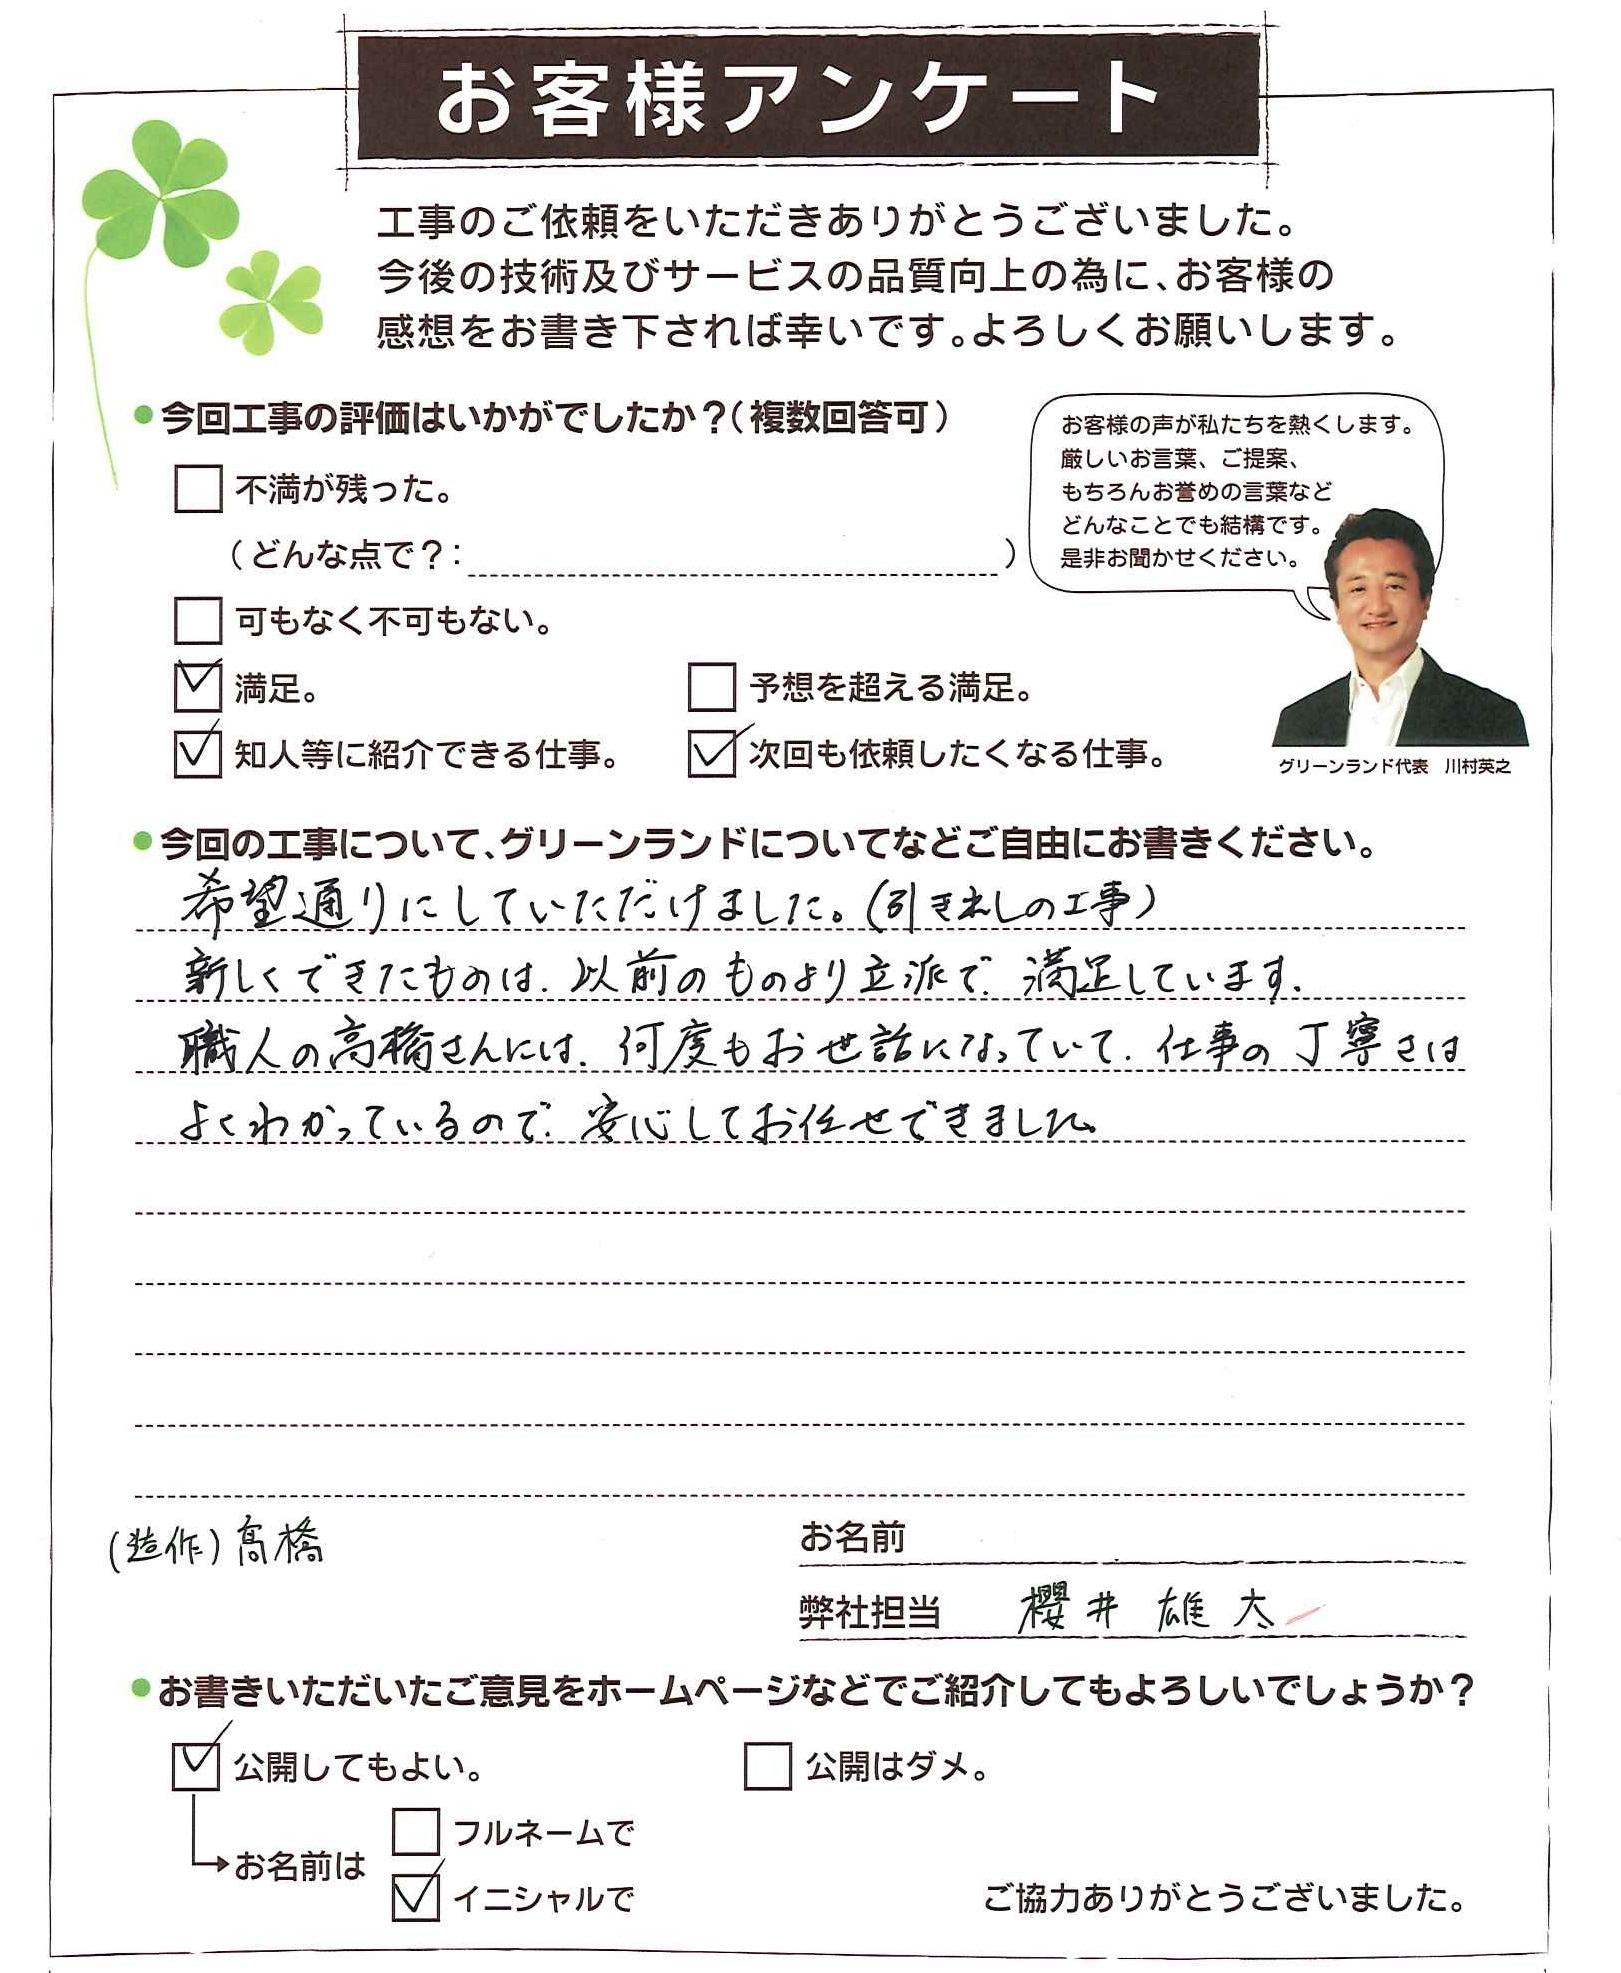 お客様アンケート
工事のご依頼をいただきありがとうございました。
今後の技術及びサービスの品質向上の為に、お客様の
感想をお書き下されば幸いです。よろしくお願いします。
●今回工事の評価はいかがでしたか？（複数回答可）
不満が残った。
（どんな点で？：　）
可もなく不可もない。
満足。
予想を超える満足。
知人等に紹介できる仕事。
次回も依頼したくなる仕事。
お客様の声が私たちを熱くします。
厳しいお言葉、ご提案、
もちろんお誉めの言葉など
どんなことでも結構です。
是非お聞かせください。
グリーンランド代表　川村英之
●今回の工事について、グリーンランドについてなどご自由にお書きください。
希望通りにしていただけました。（引きわしの工事）
新しくできたものは、以前のものより立派で、満足しています。
職人の高橋さんには、何度もお世話になっていて、仕事の丁寧さは
よくわかっているので、安心してお任せできました。
（造作）髙橋
お名前
弊社担当　櫻井 雄太
●お書きいただいたご意見をホームページなどでご紹介してもよろしいでしょうか？
公開してもよい。
公開はダメ。
お名前は
フルネームで
イニシャルで
ご協力ありがとうございました。